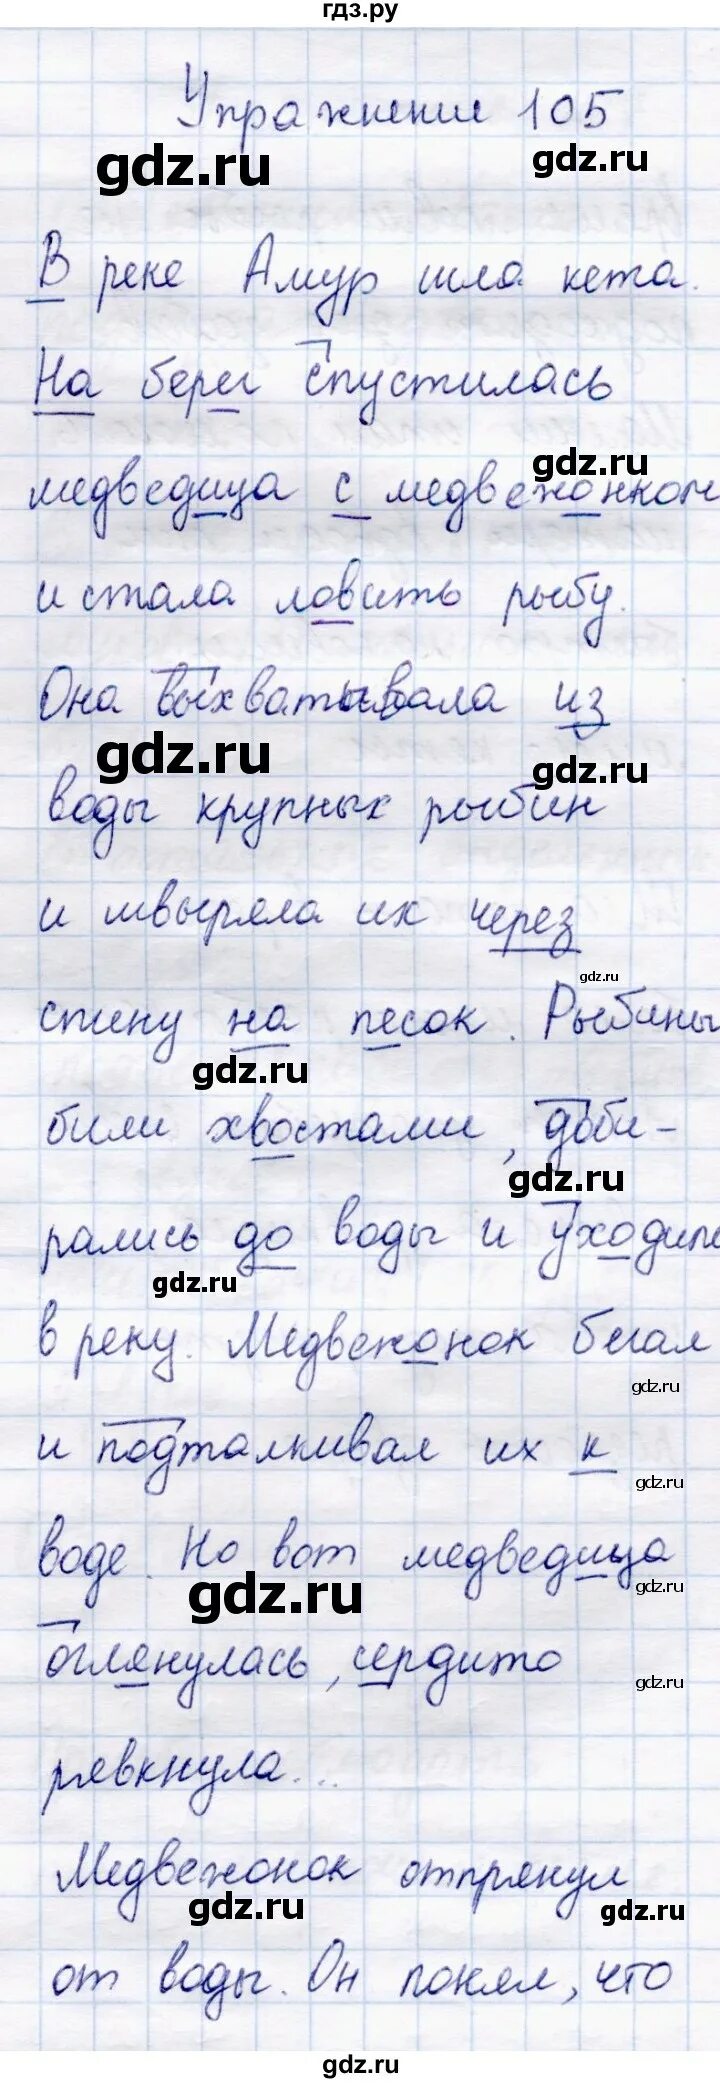 гдз.ру
Упражнение 105
gdz.ru
gdz.ru
В реке Амур шла кета.
На берег спустилась
gdz.ru
медведица с медвежонком
и стала ловить рыбу.
Она выхватывала из
gdz.ru
gdz.ru
воды крупных рыбин
и швыряла их через
gdz.ru
спину на песок. Рыбины
gdz.ru
били хвостами, доби-
gdz.ru
рались до воды и уходили
gdz.ru
в реку. Медвежонок бегал
gdz.ru
и подталкивал их к
gdz.ru
воде. Но вот медведица
gdz.ru
gdz.ru
оглянулась, сердито
gdz.ru
рявкнула...
Медвежонок отпрянул
gdz.ru
gdz.ru
от воды. Он понял, что
gdz.ru